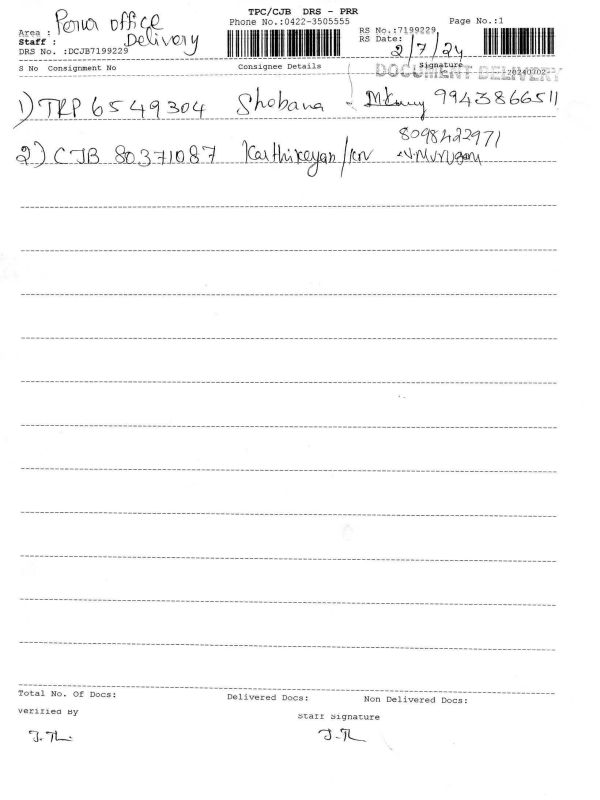 TPC/CJB DRS - PRR
Phone No.:0422-3505555
Page No.:1
Area : office
Staff : Delivery
DRS No. :DCJB7199229
RS No.:7199229
RS Date: 2/7/24
S No Consignment No Consignee Details Signature
DOCUMENT DELIVERY
1) TRP 6549304 Shobana 9943866511
8098422971
2) CJB 80371087 Karthikeyan
Total No. Of Docs: Delivered Docs: Non Delivered Docs:
Verified By Staff Signature